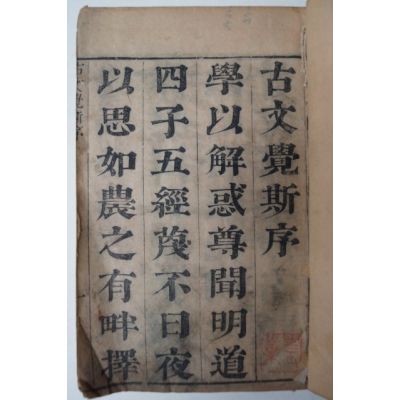 古文覺斯序
學以解惑尊聞明道
四子五經蔑不日夜
以思如農之有畔擇
古文覺斯序